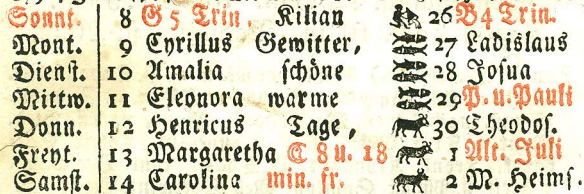 Sonnt. 8 G 5 Trin. Kilian 26 B 4 Trin.
Mont. 9 Cyrillus Gewitter, 27 Ladislaus
Dienst. 10 Amalia schöne 28 Josua
Mittw. 11 Eleonora warme 29 P. u. Pauli
Donn. 12 Henricus Tage, 30 Theodos.
Freyt. 13 Margaretha ☾ 8 u. 18 1 Alt. Juli
Samst. 14 Carolina min. fr. 2 M. Heims